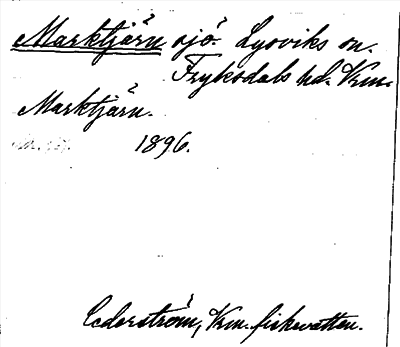 Marktjärn sjö. Lysviks sn.
Fryksdals hd. Vrm.
Marktjärn.
1896.
Cederström, Vrm. fiskevatten.